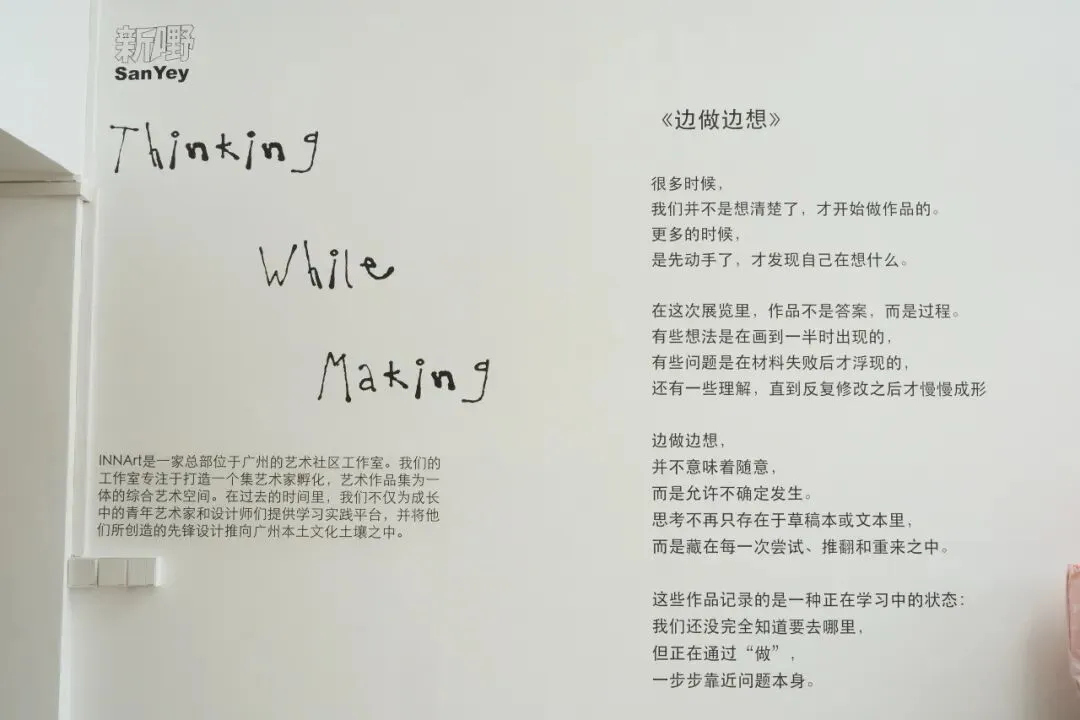 新嘢
SanYey
Thinking
While
Making
INNArt是一家总部位于广州的艺术社区工作室。我们的
工作室专注于打造一个集艺术家孵化，艺术作品集为一
体的综合艺术空间。在过去的时间里，我们不仅为成长
中的青年艺术家和设计师们提供学习实践平台，并将他
们所创造的先锋设计推向广州本土文化土壤之中。
《边做边想》
很多时候，
我们并不是想清楚了，才开始做作品的。
更多的时候，
是先动手了，才发现自己在想什么。
在这次展览里，作品不是答案，而是过程。
有些想法是在画到一半时出现的，
有些问题是在材料失败后才浮现的，
还有一些理解，直到反复修改之后才慢慢成形
边做边想，
并不意味着随意，
而是允许不确定发生。
思考不再只存在于草稿本或文本里，
而是藏在每一次尝试、推翻和重来之中。
这些作品记录的是一种正在学习中的状态：
我们还没完全知道要去哪里，
但正在通过“做”，
一步步靠近问题本身。